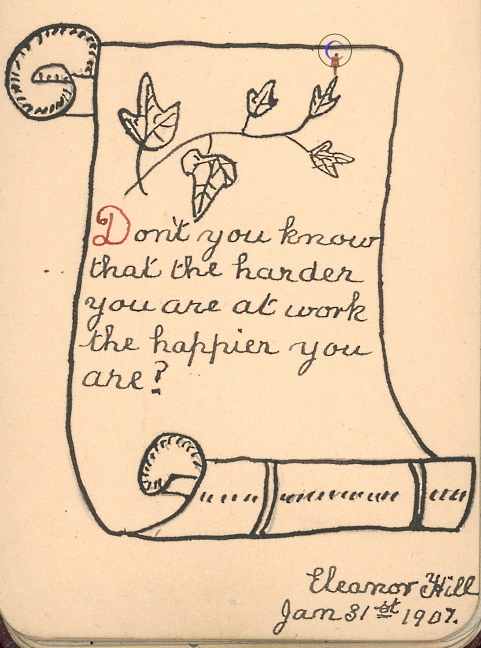 Don't you know
that the harder
you are at work
the happier you
are?
Eleanor Hill
Jan 31st 1907.